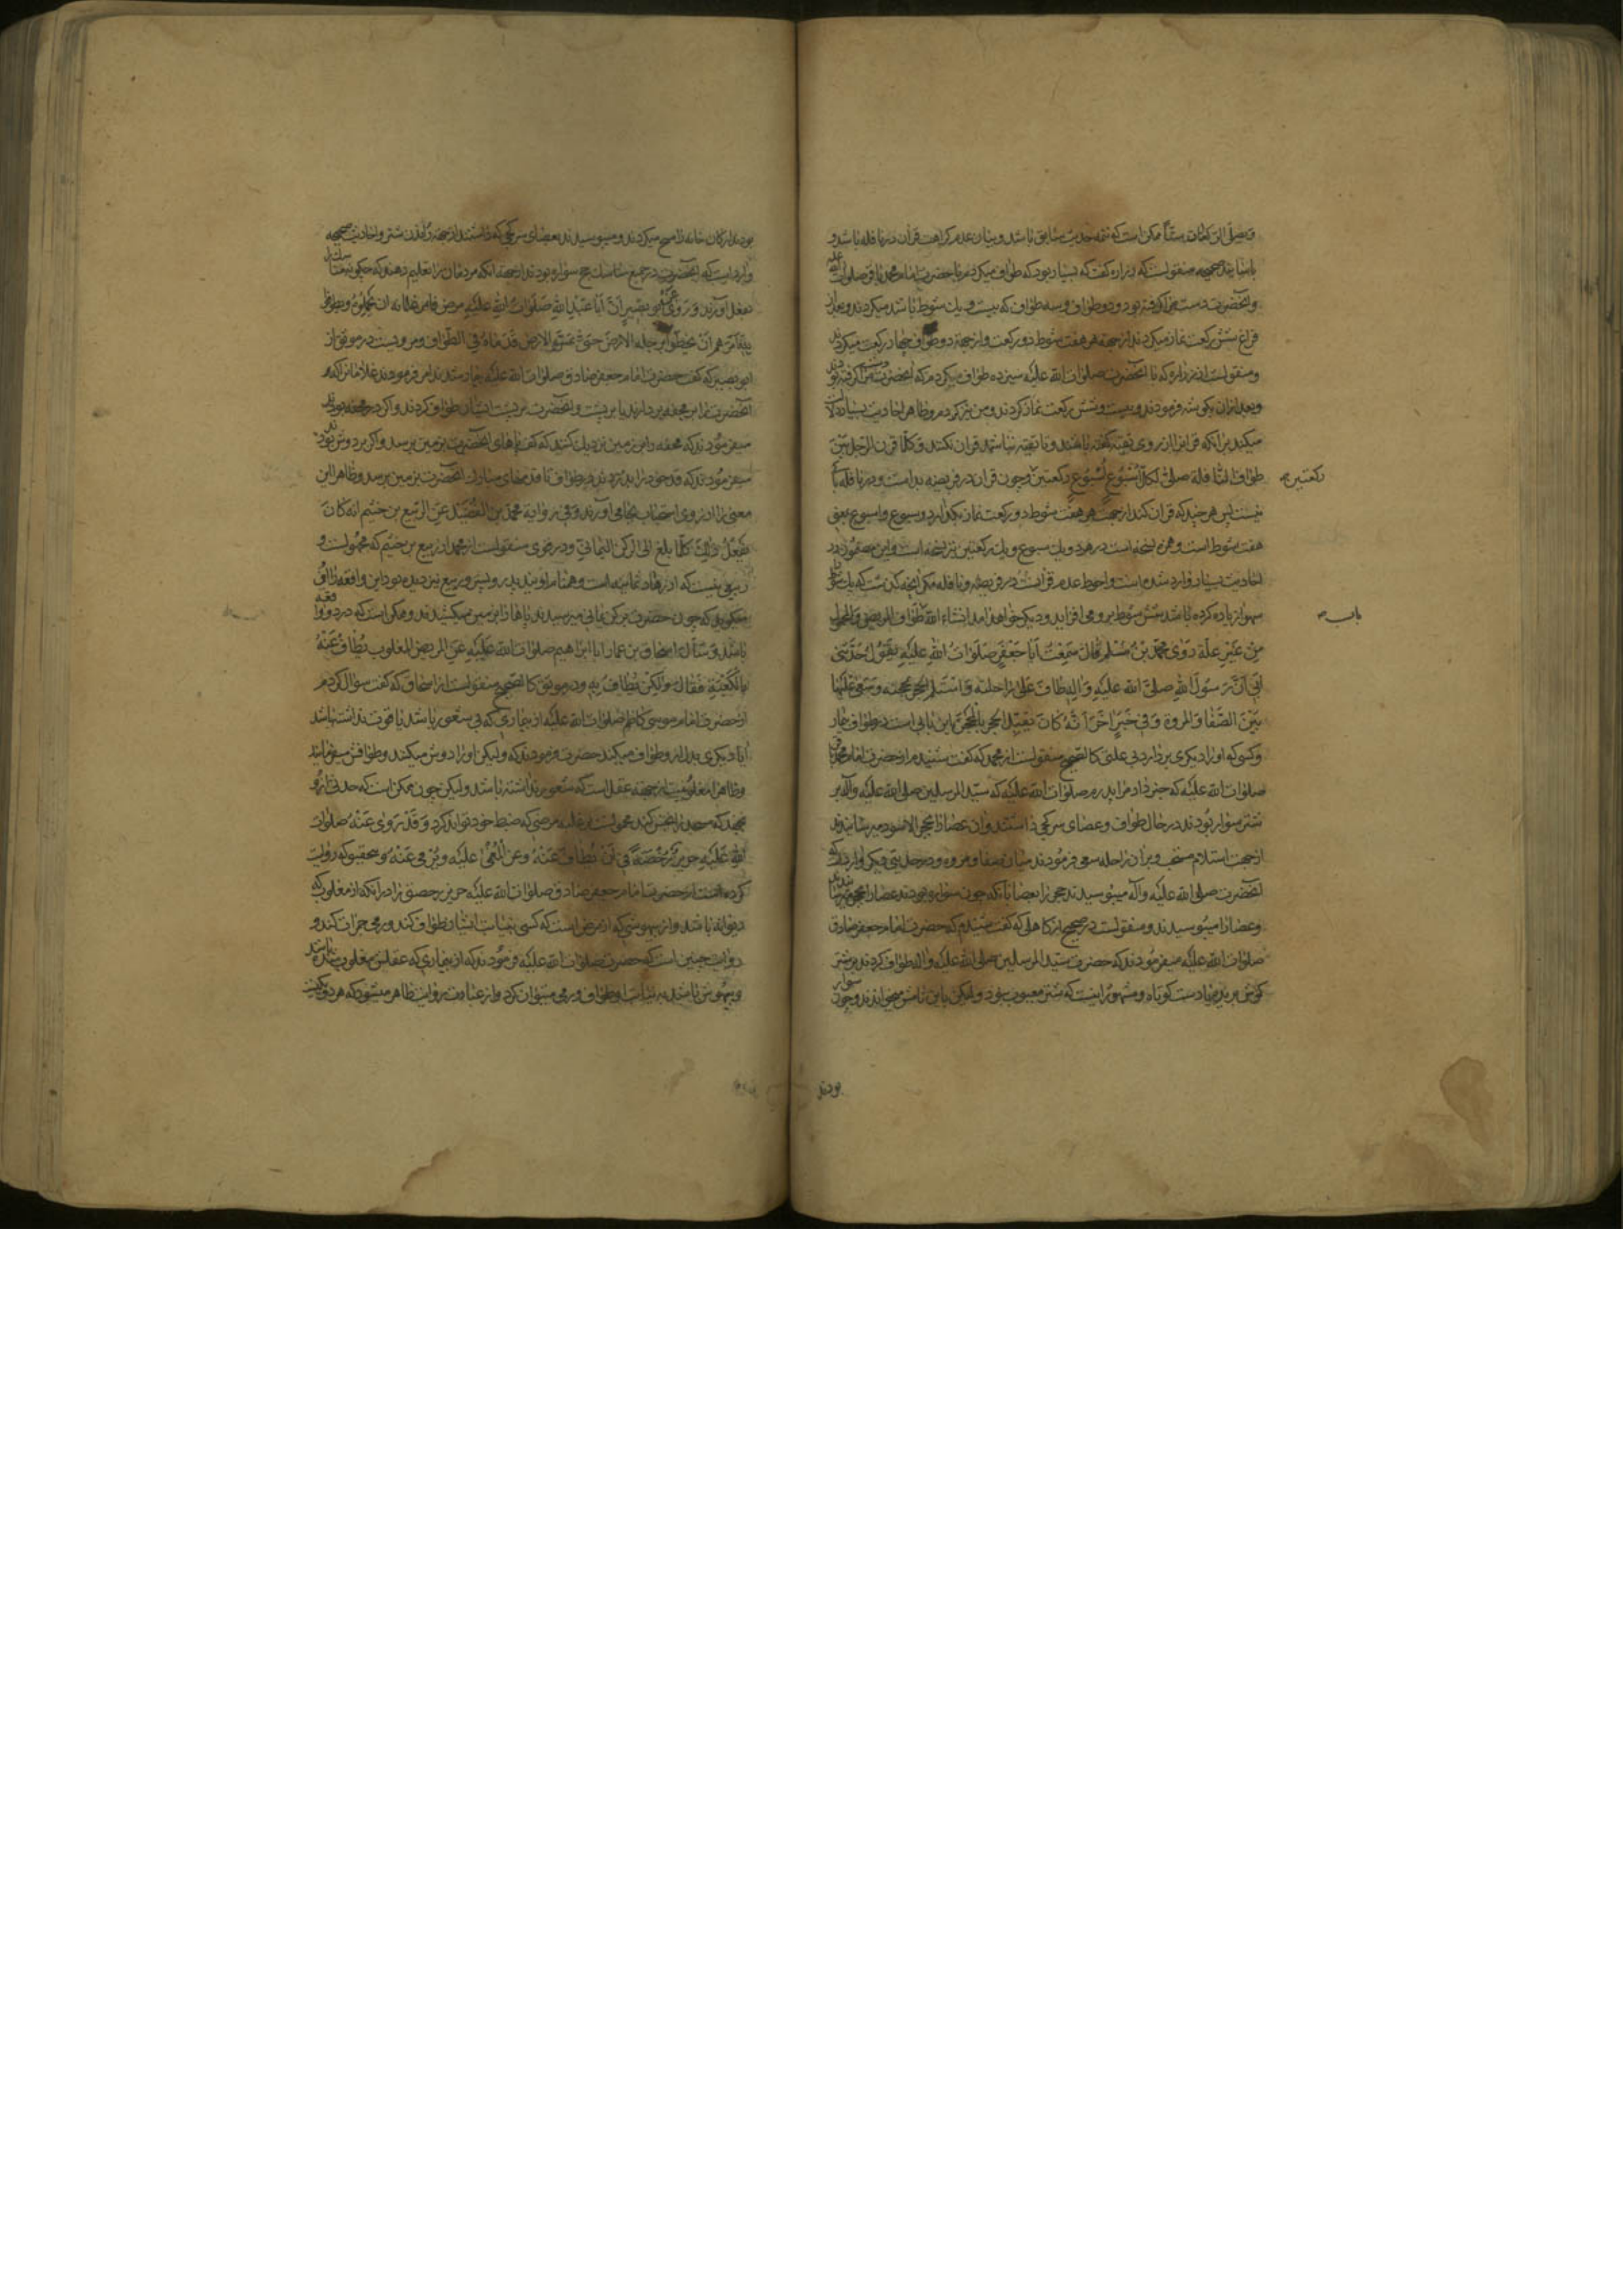 و یصلی الرکعات ستّا ممکن است که تتمه حدیث سابق باشد و بیان عدم کراهت قران در نافله باشد و
باسانید صحیحه منقولست که زراره گفت که بسیار بود که طواف میکردم با حضرت امام محمد باقر صلوات الله علیه
و آنحضرت دست مرا گرفته بود و دو طواف و سه طواف که بیست و یک شوط باشد میکردند و بعد از
فراغ شش رکعت نماز میکردند از جهة هر هفت شوط دو رکعت و از جهة دو طواف چهار رکعت میکردند
و منقولست از زراره که با آنحضرت صلوات الله علیه سیزده طواف میکردم که آنحضرت دست مرا گرفته بودند
و بعد از آن بگوشه فرمودند و بیست و شش رکعت نماز کردند و من نیز کردم و ظاهر احادیث بسیار دلالت
میکند بر آنکه قران از روی تقیه باشند و تا تقیه نباشد قران نکنند و کلّما قرن الرّجل بین
طواف النّافلة صلّی لکلّ اُسبُوع اُسبُوع رکعتین و چون قران در فریضه بد است و در نافله بد
نیست پس هر چند که قران کند از جهت هر هفت شوط دو رکعت نماز بگذارد و سبوع و اسبوع بمعنی
هفت شوط است و همزه نسخه است در هر دو یک سبوع و یک رکعتین نیز نسخه است و این مضمون در
احادیث بسیار وارد شده است و احوط عدم قرانست در فریضه و نافله مگر آنچه گذشت که یک شوط
سهوا زیاده کرده باشد شش شوط بر و می افزاید و دیگر خواهد آمد انشاء الله طواف المریض و المحمول
مِنْ غَیْرِ عِلَّة رَوَی مُحَمَّدُ بْنُ مُسْلِم قَالَ سَمِعْتُ اَبَا جَعْفَرٍ صَلَوَاتُ اللهِ عَلَیْهِ یَقُولُ حَدَّثَنِی
اَبِی اَنَّ رَسُولَ اللهِ صَلَّی الله عَلَیْهِ وَ الِهِ طَافَ عَلَی رَاحِلَتِهِ وَ اسْتَلَمَ الحَجَرَ بِمِحْجَنِهِ وَ سَعَی عَلَیْهَا
بَیْنَ الصَّفَا وَ المَرْوَة وَ فِی خَبَرٍ اخَرَ اَنَّهُ کَانَ یُقَبِّلُ الحَجَرَ بِالمِحْجَنِ این بابی است در طواف بیمار
و کسی که او را دیگری بردارد بی علتی کالصحیح منقولست از محمد که گفت شنیدم از حضرت امام محمد باقر
صلوات الله علیه که خبر داد مرا پدرم صلوات الله علیه که سیّد المرسلین صلی الله علیه و آله بر
شتر سوار بودند در حال طواف و عصای سر کجی داشتند و ان عصا را بحجر الاسود میرسانیدند
از جهت استلام مستحب و بر ان راحله سعی فرمودند میان صفا و مروه و در حدیثی دیگر وارد است که
آنحضرت صلی الله علیه و آله میبوسیدند حجر را بعصا با آنکه چون سواره بودند عصا را بحجر میرسانیدند
و عصا را میبوسیدند و منقولست در صحیح از کاهلی که گفت شنیدم که حضرت امام جعفر صادق
صلوات الله علیه میفرمودند که حضرت سیّد المرسلین صلی الله علیه و اله طواف کردند بر شتر
گوش بریده یا دست کوتاه و مشهور اینست که شتر معیوب نبود و لیکن باین نامش میخواندند و چون سوار
بودند
رکعتین
باب
بودند ارکان خانه را مسح میکردند و میبوسیدند بعصای سر کجی که داشتند از جهة راندن شتر و احادیث صحیحه
وارد است که آنحضرت در جمیع مناسک حج سواره بودند از جهة آنکه مردمان را تعلیم دهند که چگونه مناسک
بعمل آورند وَ رَوَی اَبُو بَصِیرٍ اَنَّ اَبَا عَبْدِ اللهِ صَلَوَاتُ اللهِ عَلَیْهِ مرض فامر غلمانه ان یحملوه و یطوفوا
بِهِ فَاَمَرَهُم اَنْ یَخُطُّوا بِرِجْلِهِ الاَرْضَ حَتَّی تَمَسَّ الاَرْضَ قَدَمَاهُ فِی الطَّوَاف و مرویست در موثق از
ابو بصیر که گفت حضرت امام جعفر صادق صلوات الله علیه بیمار شدند امر فرمودند غلامان را که
آنحضرت را بر محفه بردارند یا بر پشت و آنحضرت بر پشت ایشان طواف کردند و اگر در محفه بودند
میفرمودند که محفه را بزمین نزدیک کنند که کف پاهای آنحضرت بزمین برسد و اگر بر دوش بودند
میفرمودند که قد خود را بدزدند در طواف تا قدمهای مبارک آنحضرت بزمین برسد و ظاهرا این
معنی را از روی استحباب بجا می آورند و فی روایة محمّد بن الفُضَیْل عن الرّبیع بن خثیم انه کان
یَفْعَلُ ذَلِکَ کلّما بلغ الی الرّکن الیمانیّ و در قوی منقولست از محمد از ربیع بن خثیم که مجهولست و
ربیعی نیست که از زهاد ثمانیه است
میگوید که چون حضرت برکن یمانی میرسیدند پاها را بر زمین میکشیدند و ممکن است که در دو واقعه
باشد وَ سَاَلَ اِسْحَاق بن عمار ابا ابراهیم صلوات الله عَلَیْهِ عَنِ المریض المغلوب یُطَافُ عَنْهُ
بِالکَعْبَةِ فَقَالَ لا وَ لکِنْ یُطَافُ بِهِ و در موثق کالصحیح منقولست از اسحاق که گفت سؤال کردم
از حضرت امام موسی کاظم صلوات الله علیه از بیماری که بی شعور باشد یا قوت نداشته باشد
آیا دیگری بدل او طواف میکند حضرت فرمودند که نه و لیکن او را دوش میکنند و طوافش میفرمایند
و ظاهرا مغلوبیت از جهة عقل است که شعور نداشته باشد و لیکن چون ممکن است که حدثی از او
بجهد که مسجد را نجس کند محمولست بر غلبه مرضی که ضبط خود تواند کرد وَ قَدْ رَوَی عَنْهُ صلوات
اللهِ عَلَیْهِ حَرِیزٌ رُخْصَةً فِی اَنْ یُطَافَ عَنْهُ وَ عَنِ المُغْمَی عَلَیْهِ وَ یُرْمَی عَنْهُ و بتحقیق که روایت
کرده است از حضرت امام جعفر صادق صلوات الله علیه حریز رخصتی را در آنکه از مغلوب که
دیوانه باشد و از بیهوشی که از مرض است که کسی بنیابت ایشان طواف کند و رمی جمرات کند و
روایت چنین است که حضرت صلوات الله علیه فرمودند که از بیماری که عقلش مغلوب شده باشد
و بیهوش باشد به نیابت او طواف و رمی میتوان کرد و از عبارت روایت ظاهر میشود که هر دو